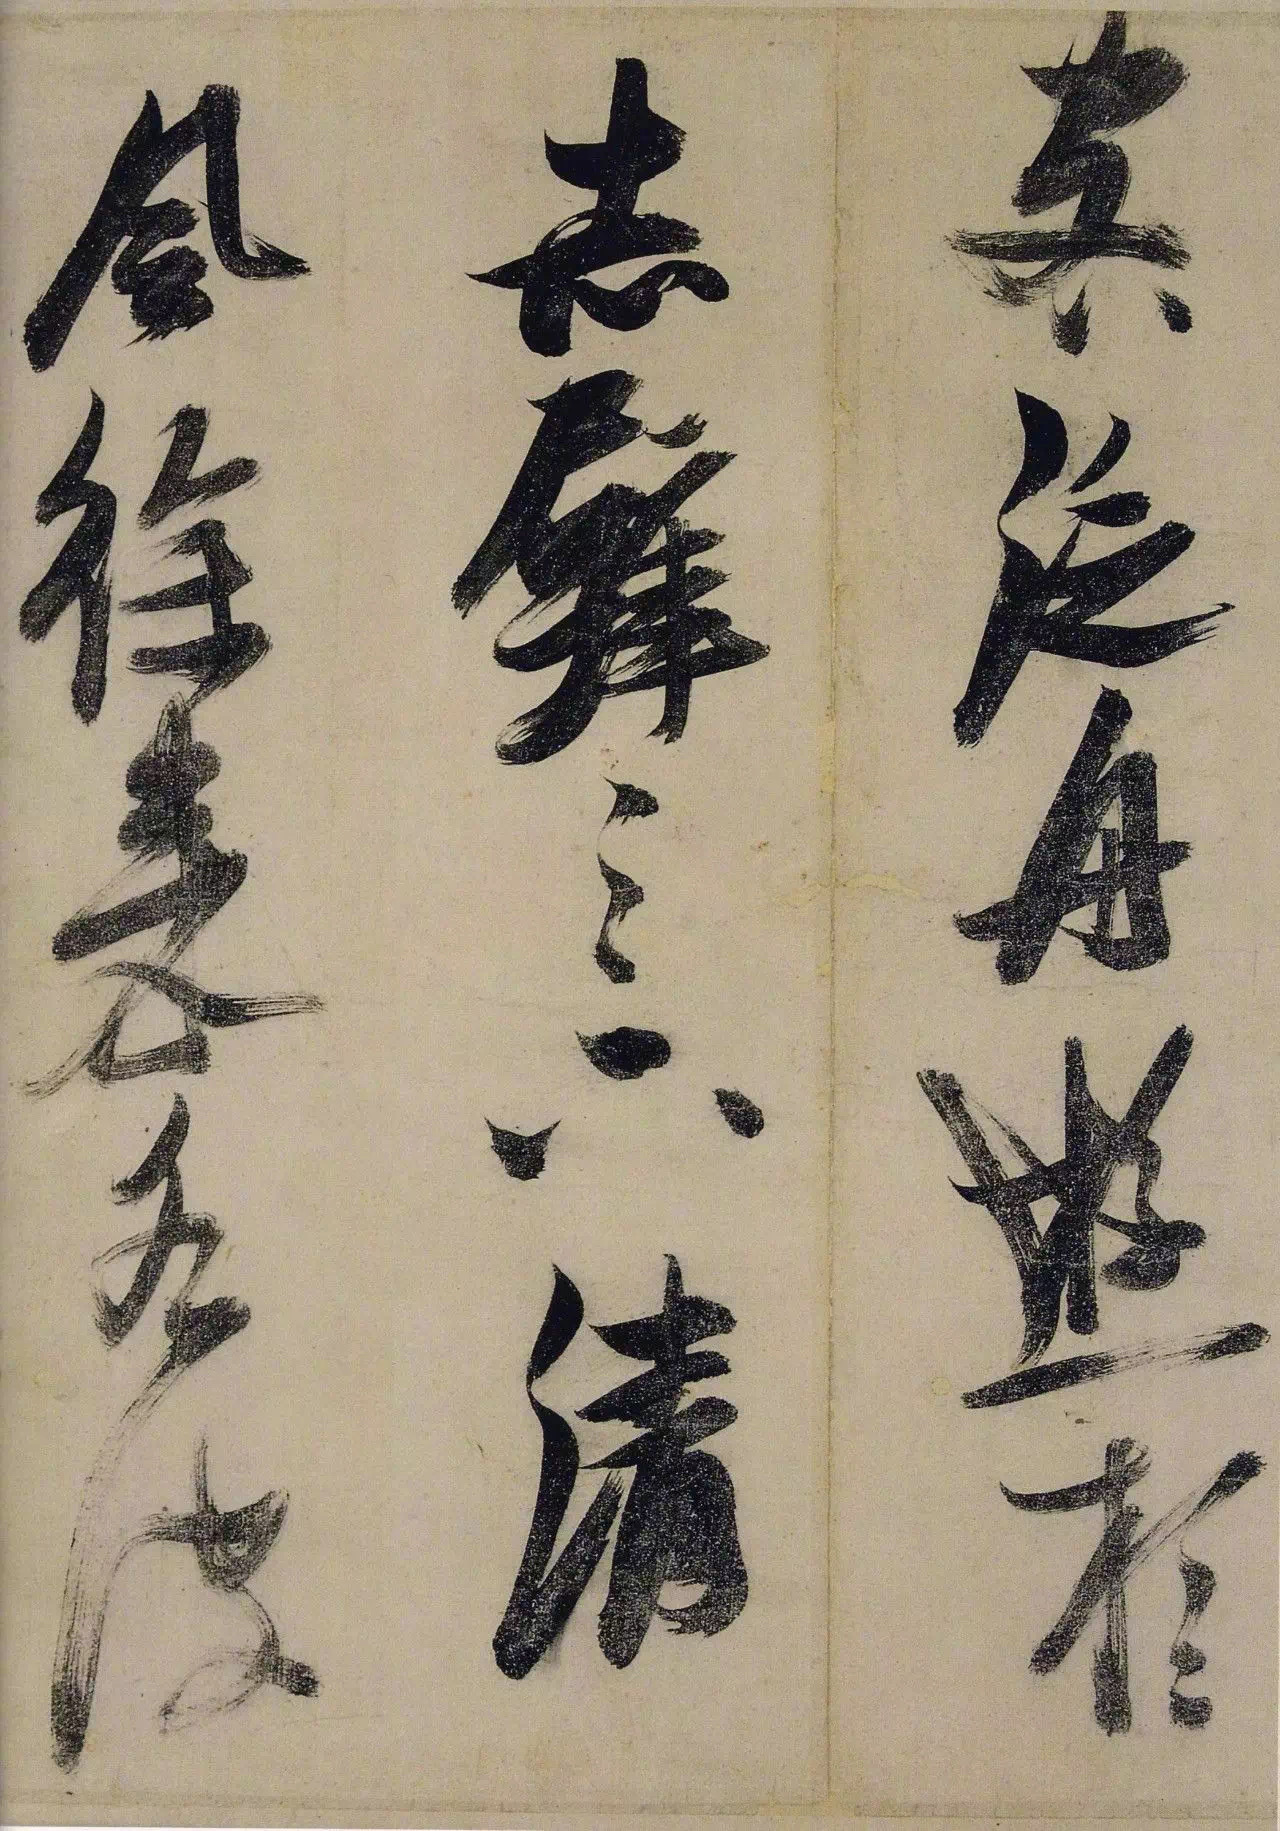 客泛舟遊於
赤壁之下清
風徐來水波